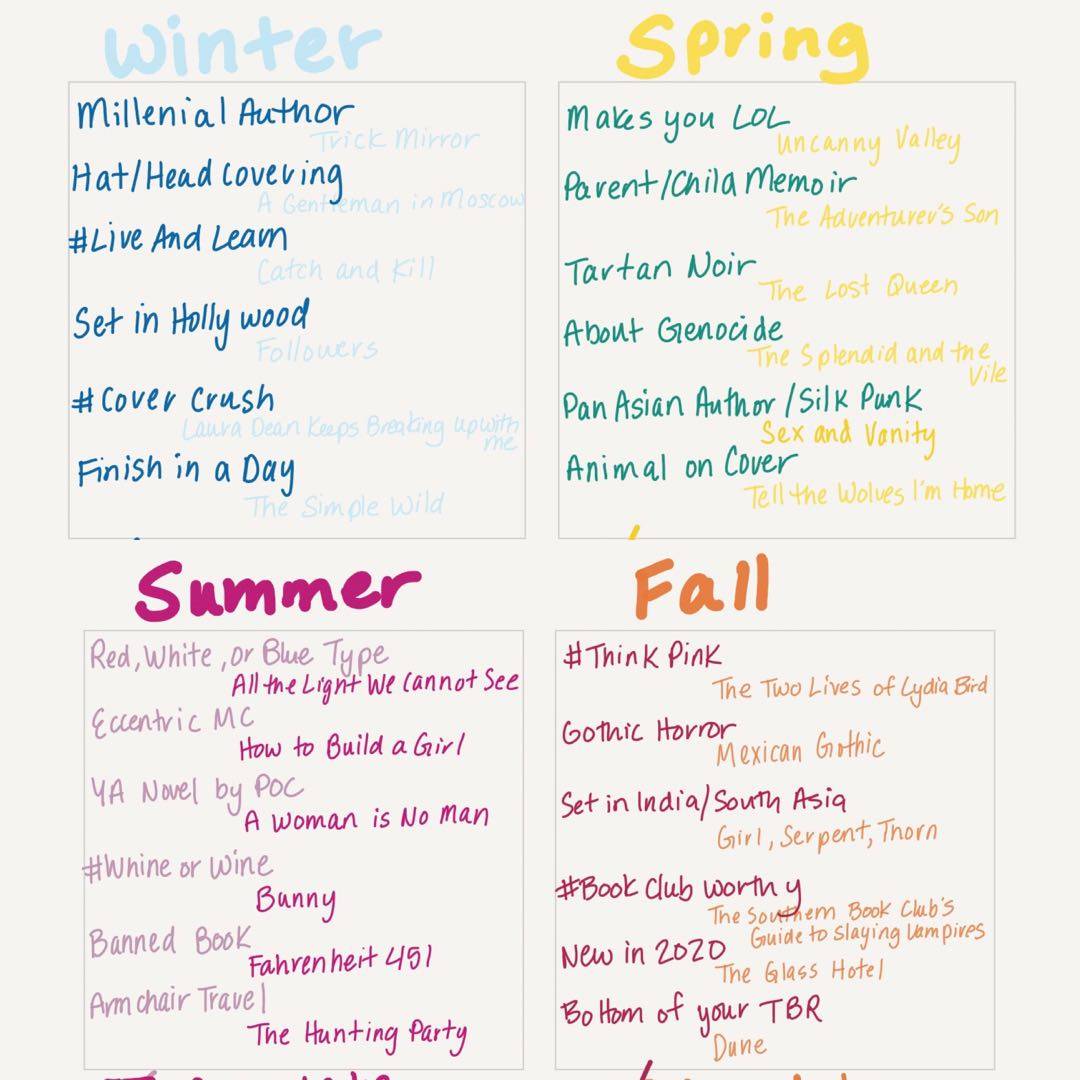 Winter
Millenial Author
Trick Mirror
Hat/Head Covering
A Gentleman in Moscow
#Live And Learn
Catch and Kill
Set in Hollywood
Followers
#Cover Crush
Laura Dean Keeps Breaking up with
me
Finish in a Day
The Simple Wild
Spring
Makes you LOL
Uncanny Valley
Parent/Child Memoir
The Adventurer's Son
Tartan Noir
The Lost Queen
About Genocide
The Splendid and the
Vile
Pan Asian Author/Silk Punk
Sex and Vanity
Animal on Cover
Tell the Wolves I'm Home
Summer
Red, White, or Blue Type
All the Light We Cannot See
Eccentric MC
How to Build a Girl
YA Novel by POC
A Woman is No Man
#Whine or Wine
Bunny
Banned Book
Fahrenheit 451
Armchair Travel
The Hunting Party
Fall
#Think Pink
The Two Lives of Lydia Bird
Gothic Horror
Mexican Gothic
Set in India/South Asia
Girl, Serpent, Thorn
#Book Club Worthy
The Southern Book Club's
Guide to Slaying Vampires
New in 2020
The Glass Hotel
Bottom of your TBR
Dune